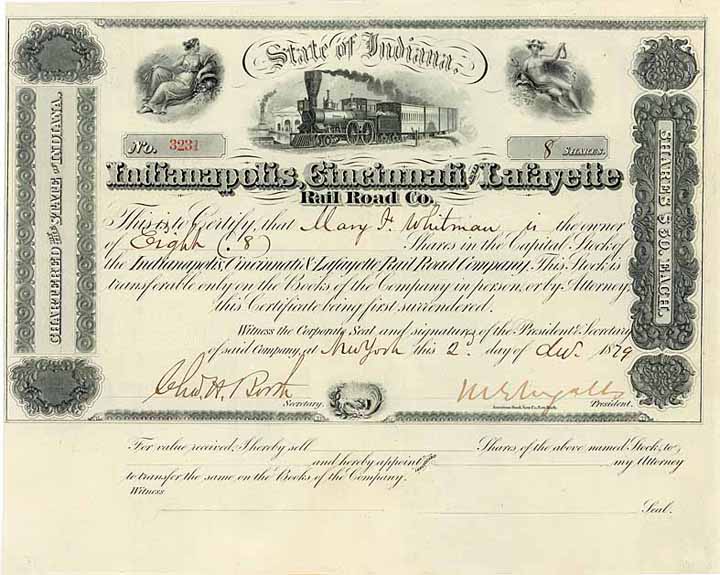 State of Indiana.
No. 3231
8 SHARES.
CHARTERED BY THE STATE OF INDIANA.
SHARES $50. EACH.
Indianapolis, Cincinnati and Lafayette
Rail Road Co.
This is to Certify, that Mary F. Whitman is the owner
of Eight (8) Shares in the Capital Stock of
the Indianapolis, Cincinnati & Lafayette Rail Road Company. This Stock is
transferable only on the Books of the Company in person, or by Attorney,
this Certificate being first surrendered.
Witness the Corporate Seal and signatures of the President & Secretary
of said Company, at New York this 2. day of Dec. 1879
Secretary.
President.
For value received, I hereby sell Shares of the above named Stock, to
and hereby appoint my Attorney
to transfer the same on the Books of the Company.
Witness
Seal.